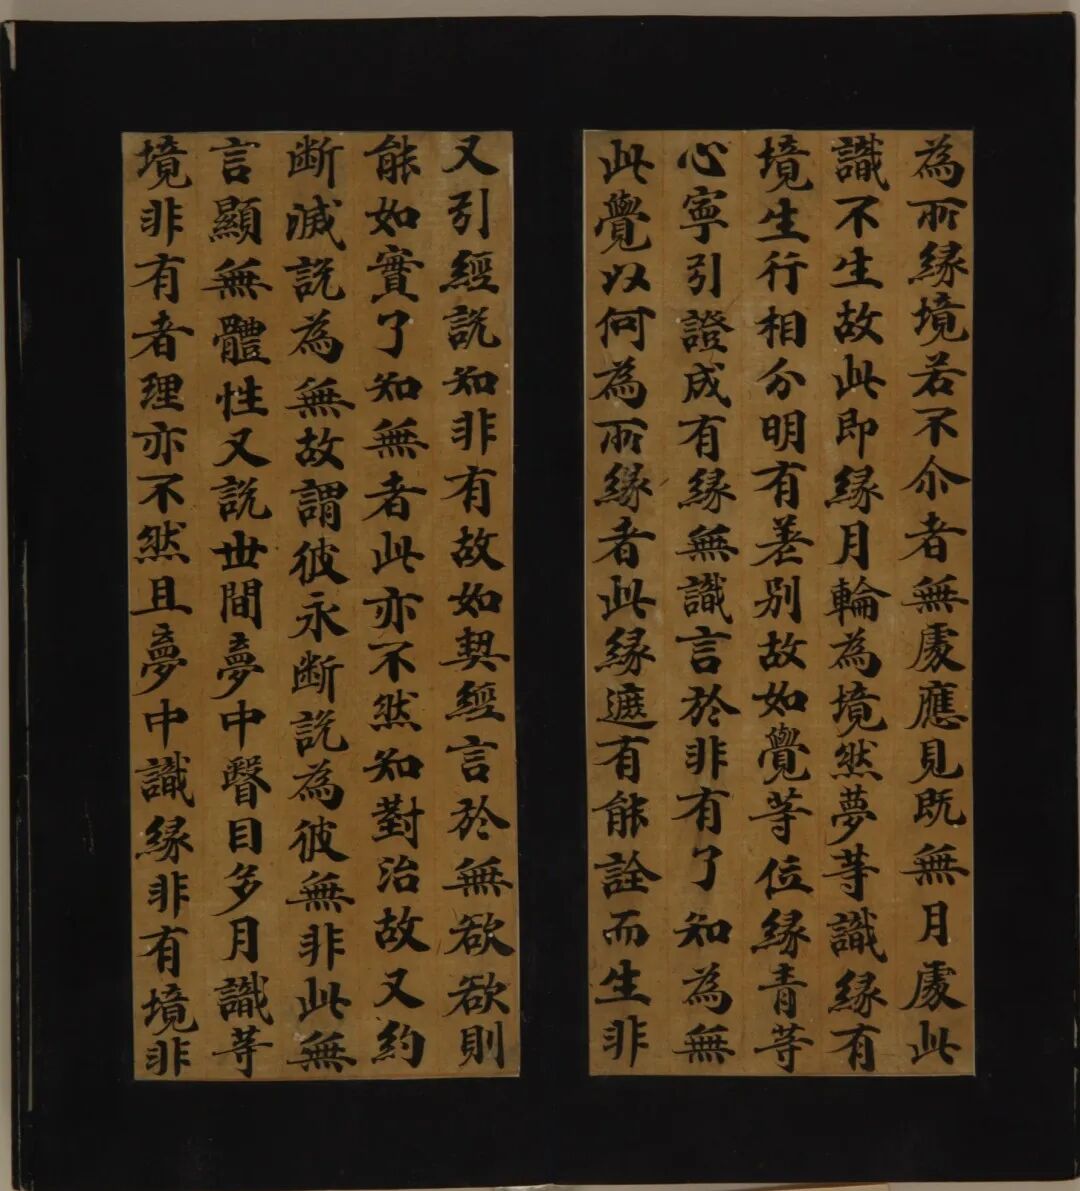 為所縁境若不尒者無處應見既無月處此
識不生故此即縁月輪為境然夢等識縁有
境生行相分明有差别故如覺等位縁青等
心寧引證成有縁無識言於非有了知為無
此覺以何為所縁者此縁遮有能詮而生非
又引經説知非有故如契經言於無欲欲則
能如實了知無者此亦不然知對治故又約
断滅説為無故謂彼永断説為彼無非此無
言顯無體性又説世間夢中瞖目多月識等
境非有者理亦不然且夢中識縁非有境非